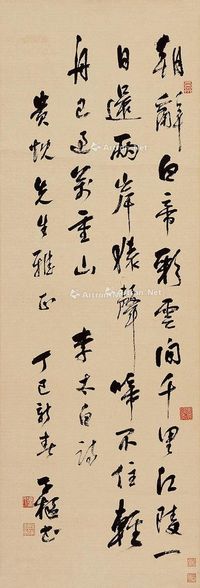 朝辭白帝彩雲間千里江陵一
日還兩岸猿聲啼不住輕
舟已過萬重山 李太白詩
贵悦先生雅正 丁巳新春